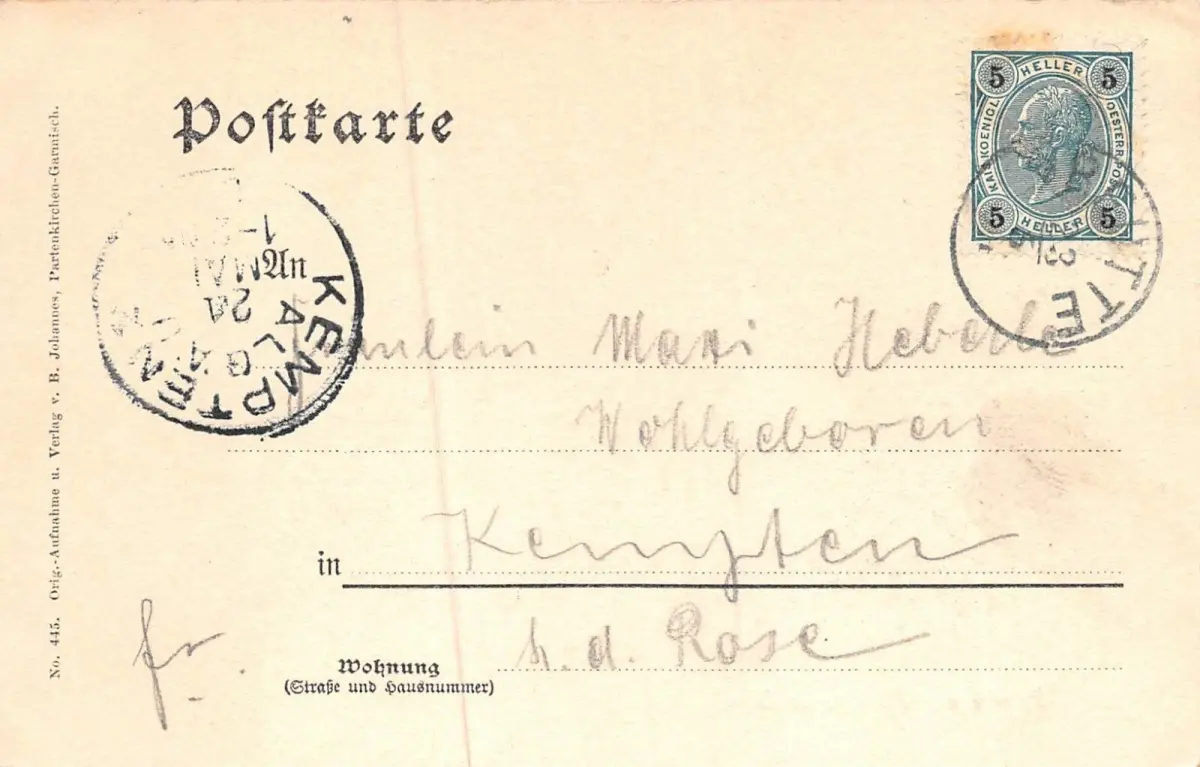 Postkarte
5 HELLER 5
KAIS. KOENIGL. OESTERR. POST
5 HELLER 5
1-2 N.
MAI
24
KEMPTEN
ALG
An
Fräulein Maxi Heberle
Wohlgeboren
in Kempten
h. d. Rose
fr.
Wohnung
(Straße und Hausnummer)
No. 445. Orig.-Aufnahme u. Verlag v. B. Johannes, Partenkirchen-Garmisch.